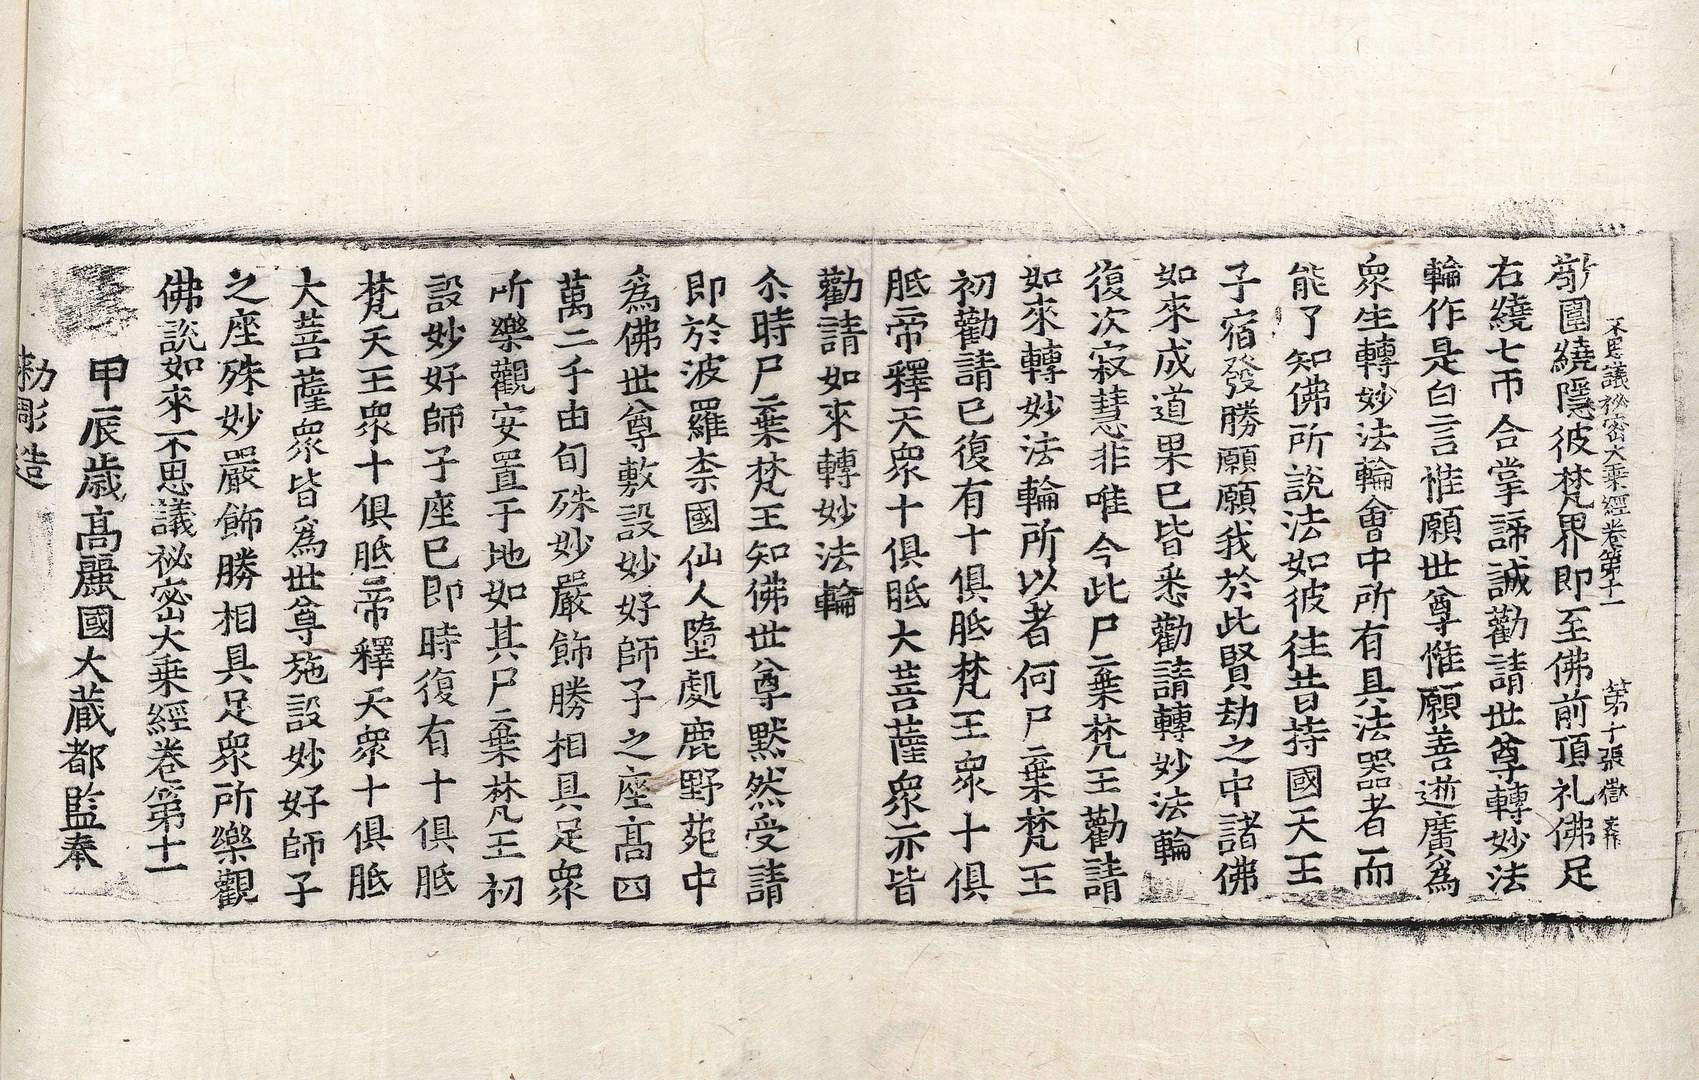 不思議祕密大乗經卷第十一 第十張 嶽
敬圍繞隱彼梵界即至佛前頂礼佛足
右繞七帀合掌諦誠勸請世尊轉妙法
輪作是白言惟願世尊惟願善逝廣爲
衆生轉妙法輪會中所有具法器者而
能了知佛所說法如彼往昔持國天王
子宿發勝願願我於此賢劫之中諸佛
如來成道果已皆悉勸請轉妙法輪
復次寂慧非唯今此尸棄梵王勸請
如來轉妙法輪所以者何尸棄梵王
初勸請已復有十俱胝梵王衆十俱
胝帝釋天衆十俱胝大菩薩衆亦皆
勸請如來轉妙法輪
尒時尸棄梵王知佛世尊默然受請
即於波羅柰國仙人墮處鹿野苑中
爲佛世尊敷設妙好師子之座高四
萬二千由旬殊妙嚴飾勝相具足衆
所樂觀安置于地如其尸棄梵王初
設妙好師子座已即時復有十俱胝
梵天王衆十俱胝帝釋天衆十俱胝
大菩薩衆皆爲世尊施設妙好師子
之座殊妙嚴飾勝相具足衆所樂觀
佛說如來不思議祕密大乗經卷第十一
甲辰歲高麗國大藏都監奉
勅彫造